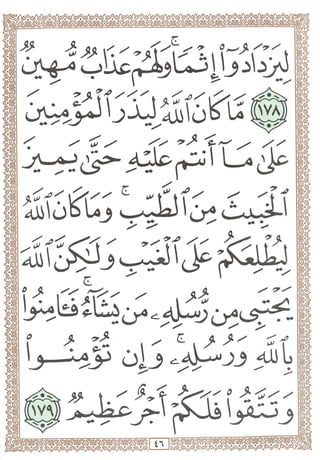 لِيَزْدَادُوٓا۟ إِثْمًا ۚ وَلَهُمْ عَذَابٌ مُّهِينٌ
١٧٨ مَّا كَانَ ٱللَّهُ لِيَذَرَ ٱلْمُؤْمِنِينَ
عَلَىٰ مَآ أَنتُمْ عَلَيْهِ حَتَّىٰ يَمِيزَ
ٱلْخَبِيثَ مِنَ ٱلطَّيِّبِ ۗ وَمَا كَانَ ٱللَّهُ
لِيُطْلِعَكُمْ عَلَى ٱلْغَيْبِ وَلَـٰكِنَّ ٱللَّهَ
يَجْتَبِى مِن رُّسُلِهِۦ مَن يَشَآءُ ۖ فَـَٔامِنُوا۟
بِٱللَّهِ وَرُسُلِهِۦ ۚ وَإِن تُؤْمِنُوا۟
وَتَتَّقُوا۟ فَلَكُمْ أَجْرٌ عَظِيمٌ ١٧٩
٤٦